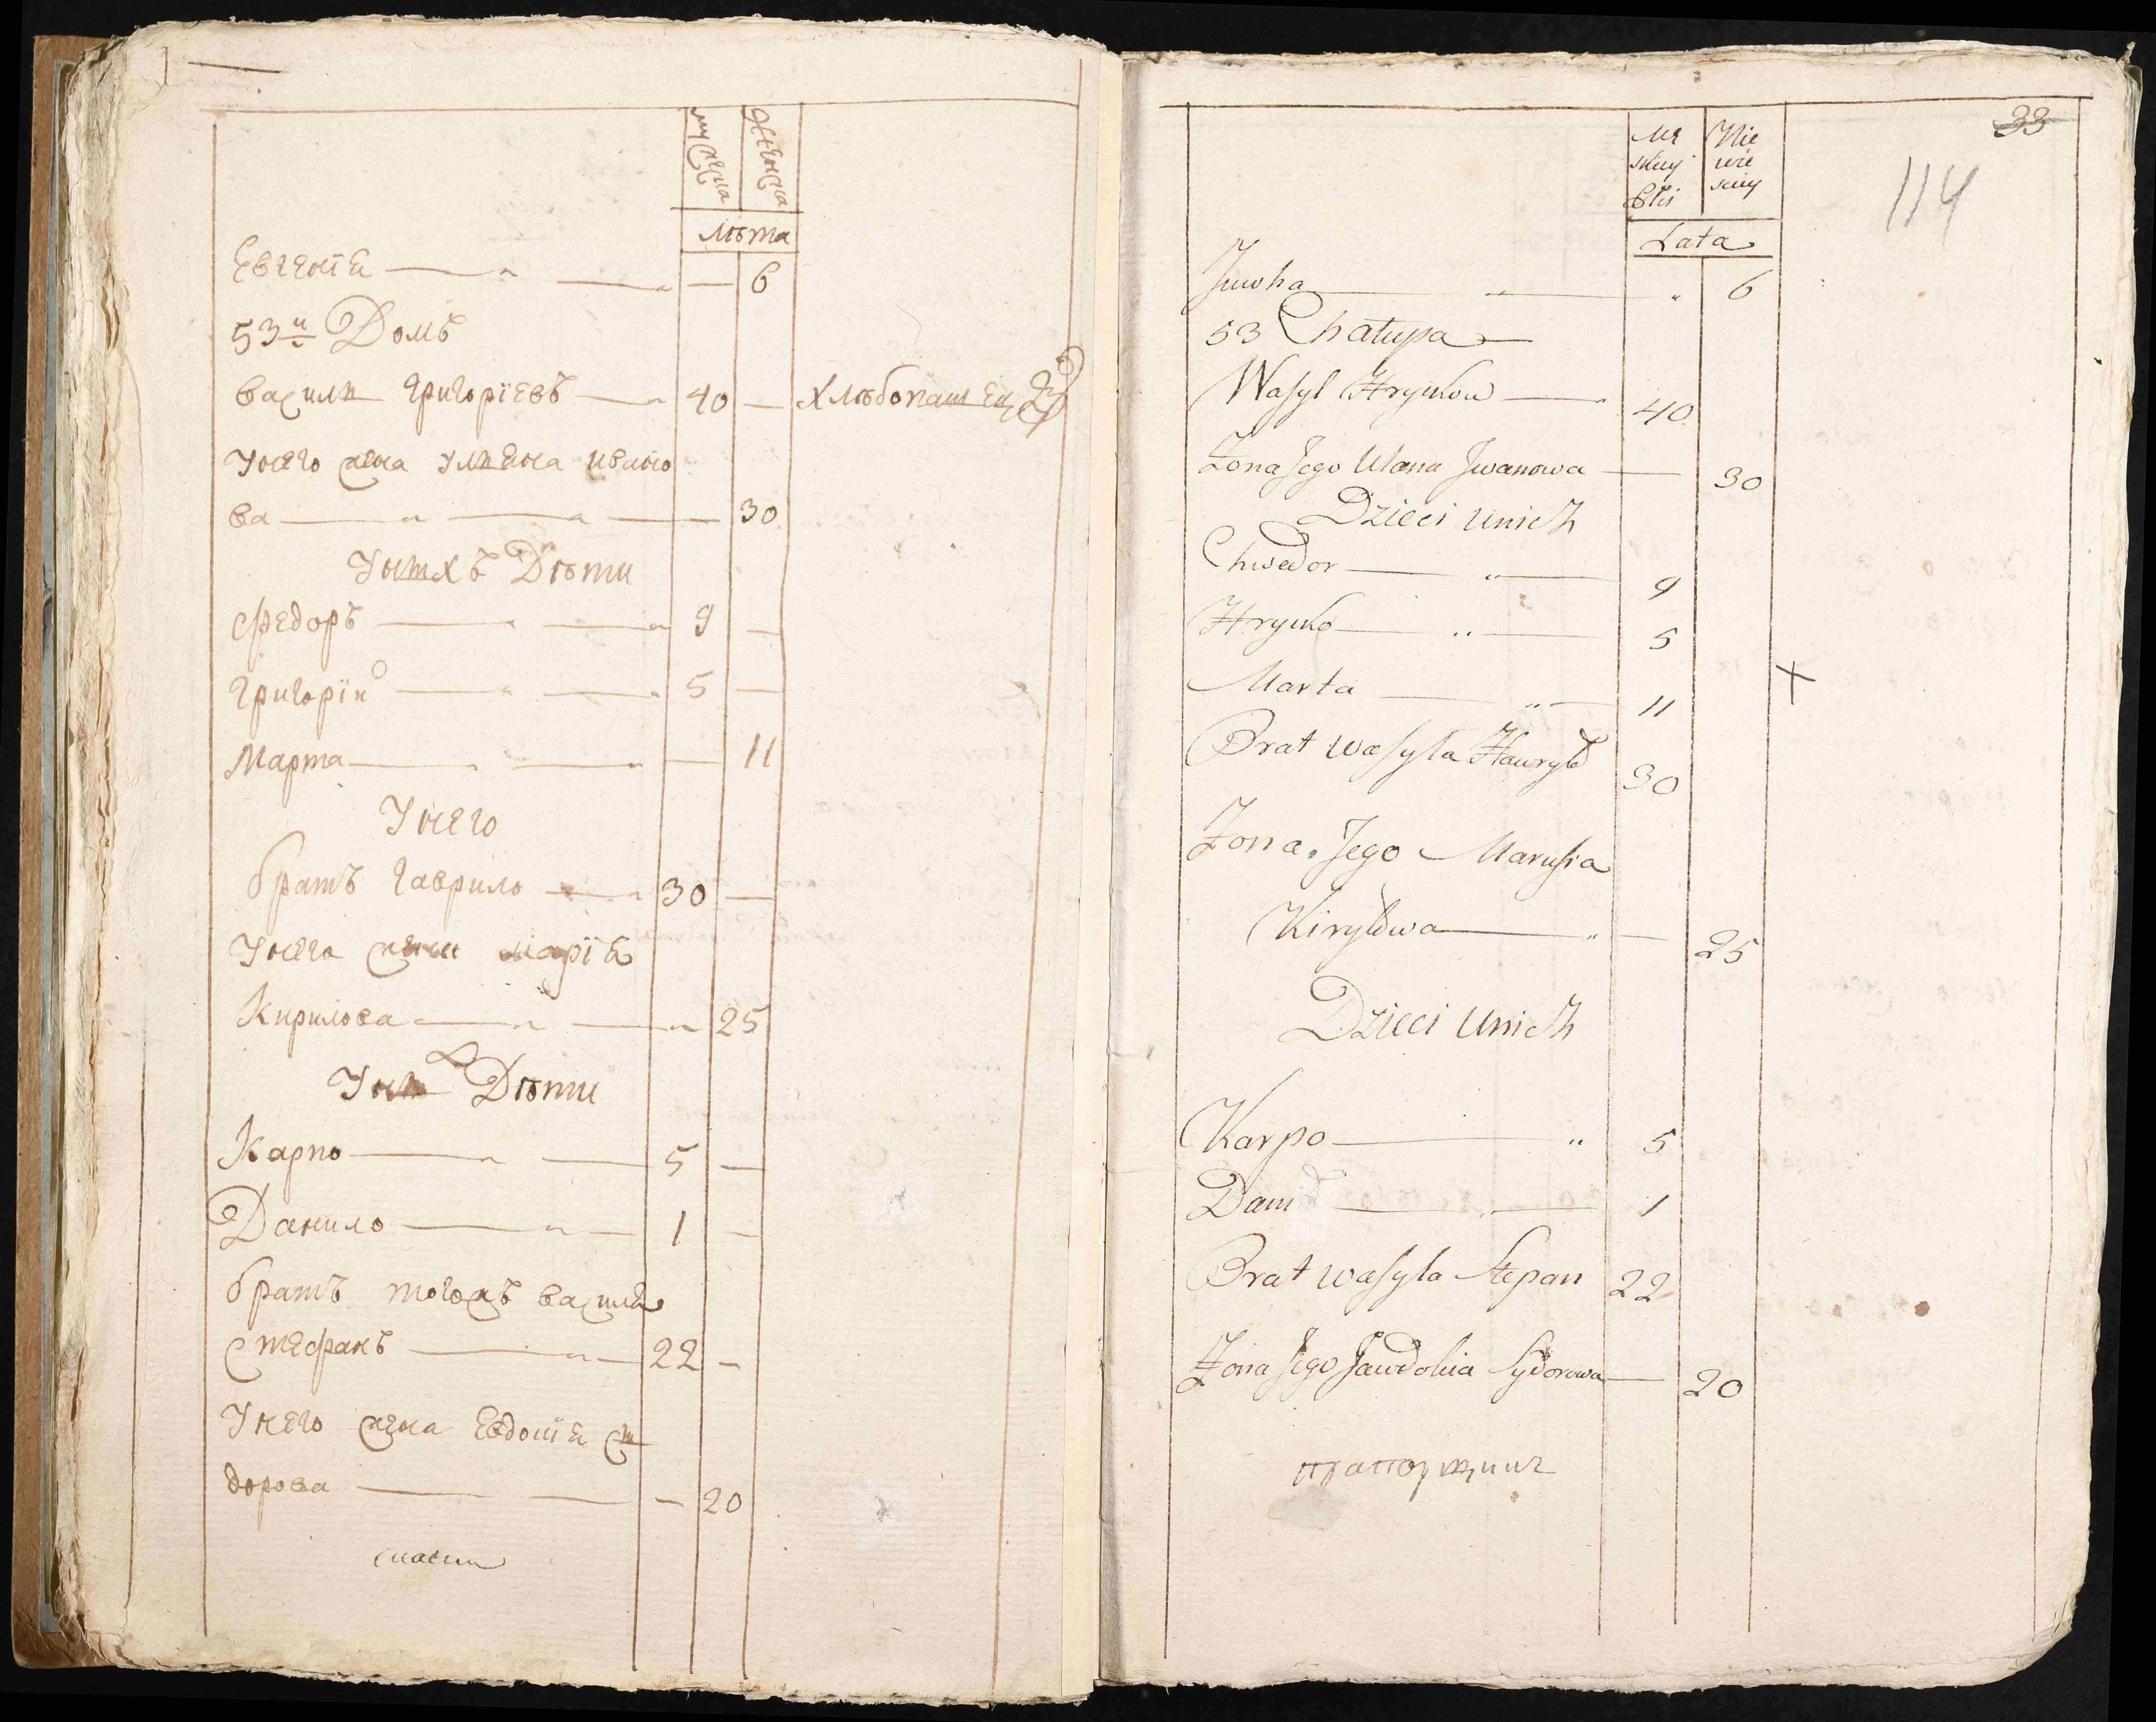 мужеска
женска
лѣта
Евгенія 6
53й Домъ
Василий Григоріевъ 40 хлѣбопашец
У него жена Ульяна Ивано
ва 30
У них Дѣти
Федоръ 9
Григорій 5
Марта 11
У него
братъ Гаврило 30
У него жена Марія
Кирилова 25
У них Дѣти
Карпо 5
Данило 1
братъ тогожъ Василя
Стефанъ 22
У него жена Евдокія Си
дорова 20
33
114
Mę Nie
skiey wie
Płci sciey
Lata
Juwha 6
53 Chałupa
Wasyl Hrynkow 40
Zona Jego Ulana Jwanowa 30
Dzieci unich
Chwedor 9
Hrynko 5
Marta 11 +
Brat wasyla Hawryło 30
Zona Jego Marusia
Kiryłowa 25
Dzieci unich
Karpo 5
Dani 1
Brat wasyla Stepan 22
Zona Jego Jawdokia Sydorowa 20
прапорщикъ